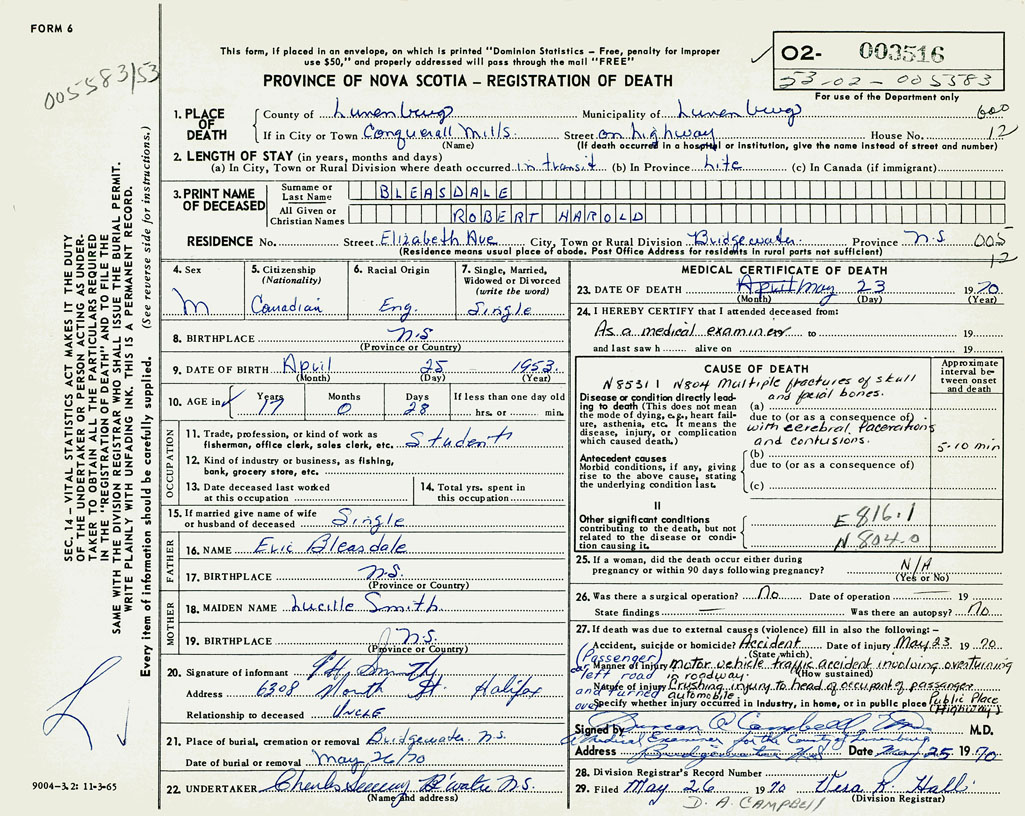 FORM 6
005583/53
This form, if placed in an envelope, on which is printed "Dominion Statistics – Free, penalty for improper
use $50," and properly addressed will pass through the mail "FREE"
PROVINCE OF NOVA SCOTIA – REGISTRATION OF DEATH
02- 003516
53-02-005583
For use of the Department only
SEC. 14 – VITAL STATISTICS ACT MAKES IT THE DUTY
OF THE UNDERTAKER OR PERSON ACTING AS UNDER-
TAKER TO OBTAIN ALL THE PARTICULARS REQUIRED
IN THE "REGISTRATION OF DEATH" AND TO FILE THE
SAME WITH THE DIVISION REGISTRAR WHO SHALL ISSUE THE BURIAL PERMIT.
WRITE PLAINLY WITH UNFADING INK. THIS IS A PERMANENT RECORD.
Every item of information should be carefully supplied. (See reverse side for instructions.)
1. PLACE OF DEATH
County of Lunenburg Municipality of Lunenburg 600
If in City or Town Conquerall Mills Street on highway House No. 12
(Name) (If death occurred in a hospital or institution, give the name instead of street and number)
2. LENGTH OF STAY (in years, months and days)
(a) In City, Town or Rural Division where death occurred in transit (b) In Province Life (c) In Canada (if immigrant)
3. PRINT NAME OF DECEASED
Surname or Last Name BLEASDALE
All Given or Christian Names ROBERT HAROLD
RESIDENCE No. Street Elizabeth Ave City, Town or Rural Division Bridgewater Province N.S. 005
(Residence means usual place of abode. Post Office Address for residents in rural parts not sufficient) 12
4. Sex M
5. Citizenship (Nationality) Canadian
6. Racial Origin Eng.
7. Single, Married, Widowed or Divorced (write the word) Single
8. BIRTHPLACE N.S
(Province or Country)
9. DATE OF BIRTH April 25 1953
(Month) (Day) (Year)
10. AGE in Years Months Days If less than one day old
17 0 28 hrs. or min.
OCCUPATION
11. Trade, profession, or kind of work as
fisherman, office clerk, sales clerk, etc. Student
12. Kind of industry or business, as fishing,
bank, grocery store, etc.
13. Date deceased last worked
at this occupation
14. Total yrs. spent in
this occupation
15. If married give name of wife
or husband of deceased Single
FATHER
16. NAME Eric Bleasdale
17. BIRTHPLACE N.S.
(Province or Country)
MOTHER
18. MAIDEN NAME Lucille Smith
19. BIRTHPLACE N.S.
(Province or Country)
20. Signature of informant Smith
Address 6308 North St. Halifax
Relationship to deceased UNCLE
21. Place of burial, cremation or removal Bridgewater N.S.
Date of burial or removal May 26/70
22. UNDERTAKER B'water N.S.
(Name and address)
9004-3.2: 11-3-65
MEDICAL CERTIFICATE OF DEATH
23. DATE OF DEATH April May 23 1970
(Month) (Day) (Year)
24. I HEREBY CERTIFY that I attended deceased from:
As a medical examiner to 19
and last saw h alive on 19
CAUSE OF DEATH
Approximate interval between onset and death
N8531 1 N804 Multiple fractures of skull
and facial bones.
Disease or condition directly lead-
ing to death (This does not mean
the mode of dying, e.g., heart fail-
ure, asthenia, etc. It means the
disease, injury, or complication
which caused death.)
(a)
due to (or as a consequence of)
with cerebral lacerations
and contusions.
5-10 min
Antecedent causes
Morbid conditions, if any, giving
rise to the above cause, stating
the underlying condition last.
(b)
due to (or as a consequence of)
(c)
II
Other significant conditions
contributing to the death, but not
related to the disease or condi-
tion causing it.
E 816.1
N 804.0
25. If a woman, did the death occur either during
pregnancy or within 90 days following pregnancy? N/A
(Yes or No)
26. Was there a surgical operation? No Date of operation — 19
State findings — Was there an autopsy? No
27. If death was due to external causes (violence) fill in also the following: –
Accident, suicide or homicide? Accident Date of injury May 23 1970
(State which)
(Passenger car left road and turned over
Manner of injury Motor vehicle traffic accident involving overturning
in roadway. (How sustained)
Nature of injury Crushing injury to head of occupant of passenger
automobile.
Specify whether injury occurred in Industry, in home, or in public place Public Place
(Highway)
Signed by Duncan A Campbell M.D.
Medical Examiner for the County of Lunenburg
Address Bridgewater N.S Date May 25 1970
28. Division Registrar's Record Number
29. Filed May 26 1970 Vera R. Hall
(Division Registrar)
D. A. CAMPBELL